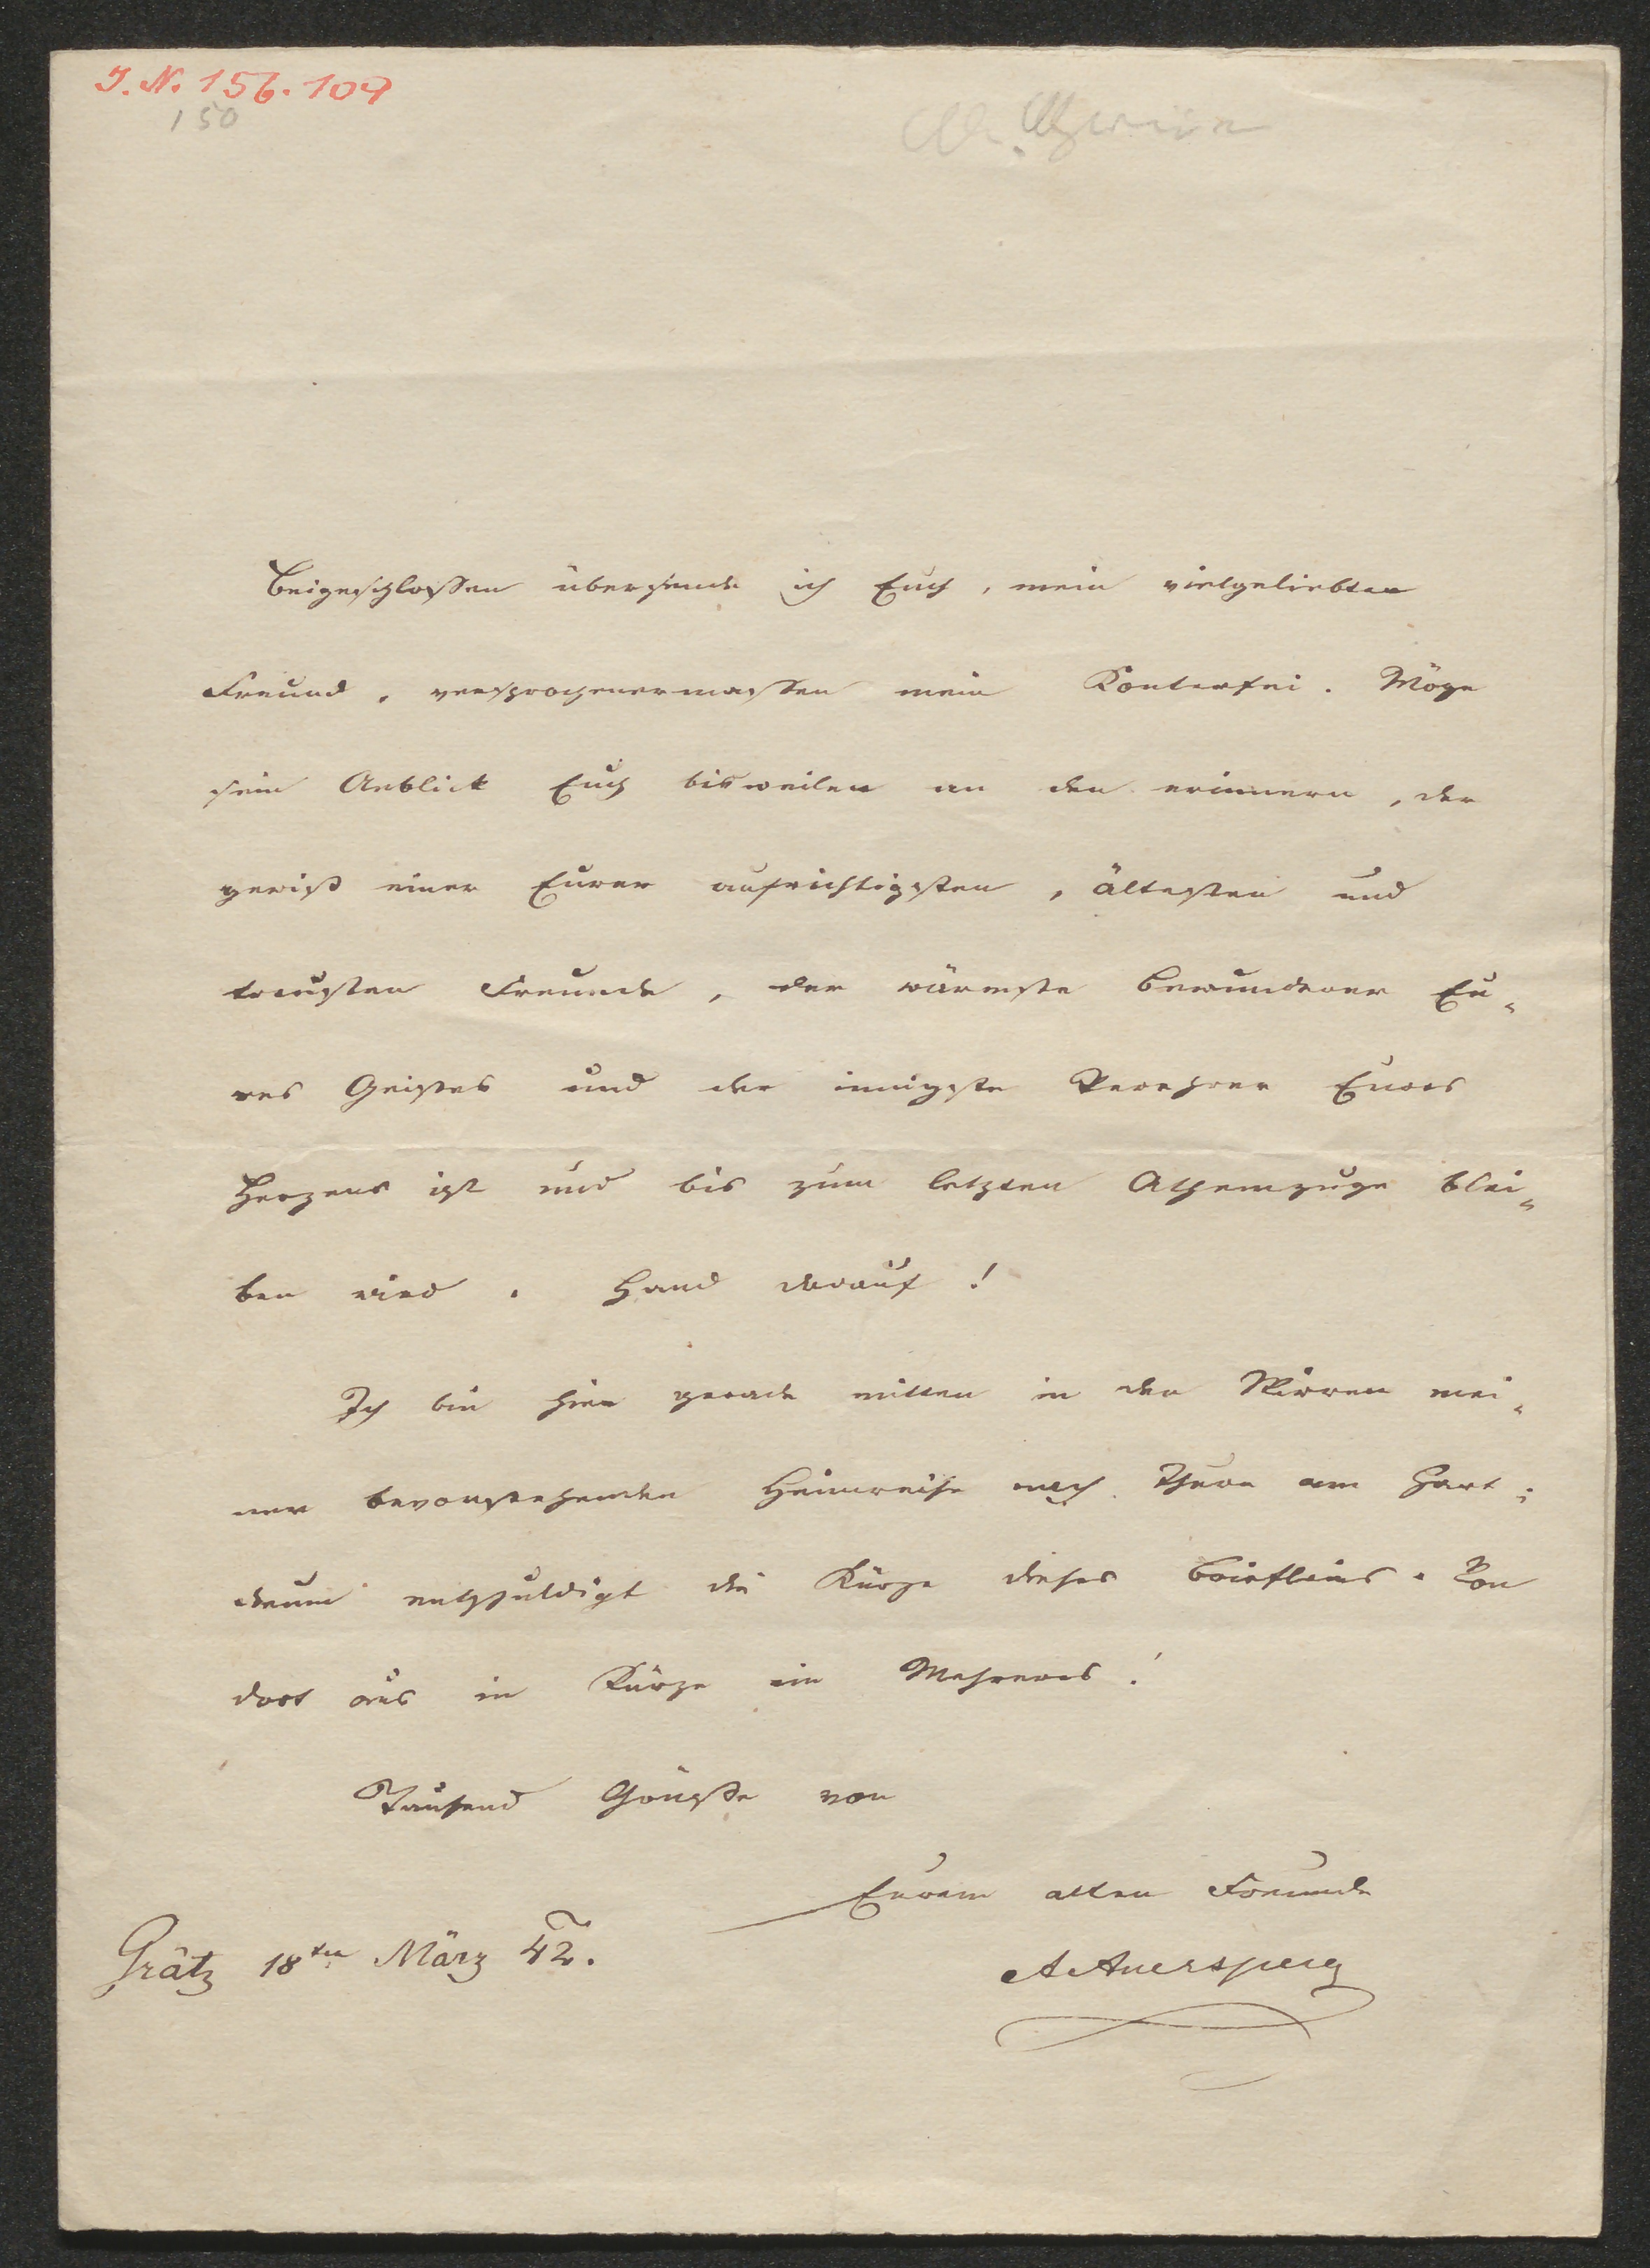 I. N. 156.109
150
Beigeschlossen übersende ich Euch, mein vielgeliebter
Freund, versprochenermassen mein Konterfei. Möge
sein Anblick Euch bisweilen an den erinnern, der
gewiß einer Eurer aufrichtigsten, ältesten und
treusten Freunde, der wärmste Bewunderer Eu-
res Geistes und der innigste Verehrer Eures
Herzens ist und bis zum letzten Athemzuge blei-
ben wird. Hand darauf!
Ich bin hier gerade mitten in den Wirren mei-
ner bevorstehenden Heimreise nach Thurn am Hart;
drum entschuldigt die Kürze dieses Briefleins. Von
dort aus in Kürze ein Mehreres!
Tausend Grüße von
Eurem alten Freunde
Grätz 18ten März 42.
AAuersperg